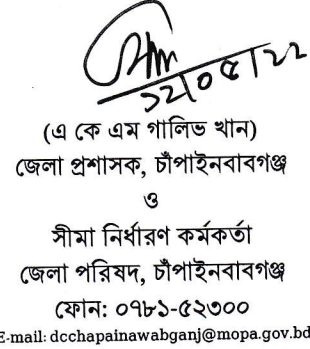 ১২/০৫/২২
(এ কে এম গালিভ খাঁন)
জেলা প্রশাসক, চাঁপাইনবাবগঞ্জ
ও
সীমা নির্ধারণ কর্মকর্তা
জেলা পরিষদ, চাঁপাইনবাবগঞ্জ
ফোন: ০৭৮১-৫২৩০০
E-mail: dcchapainawabganj@mopa.gov.bd